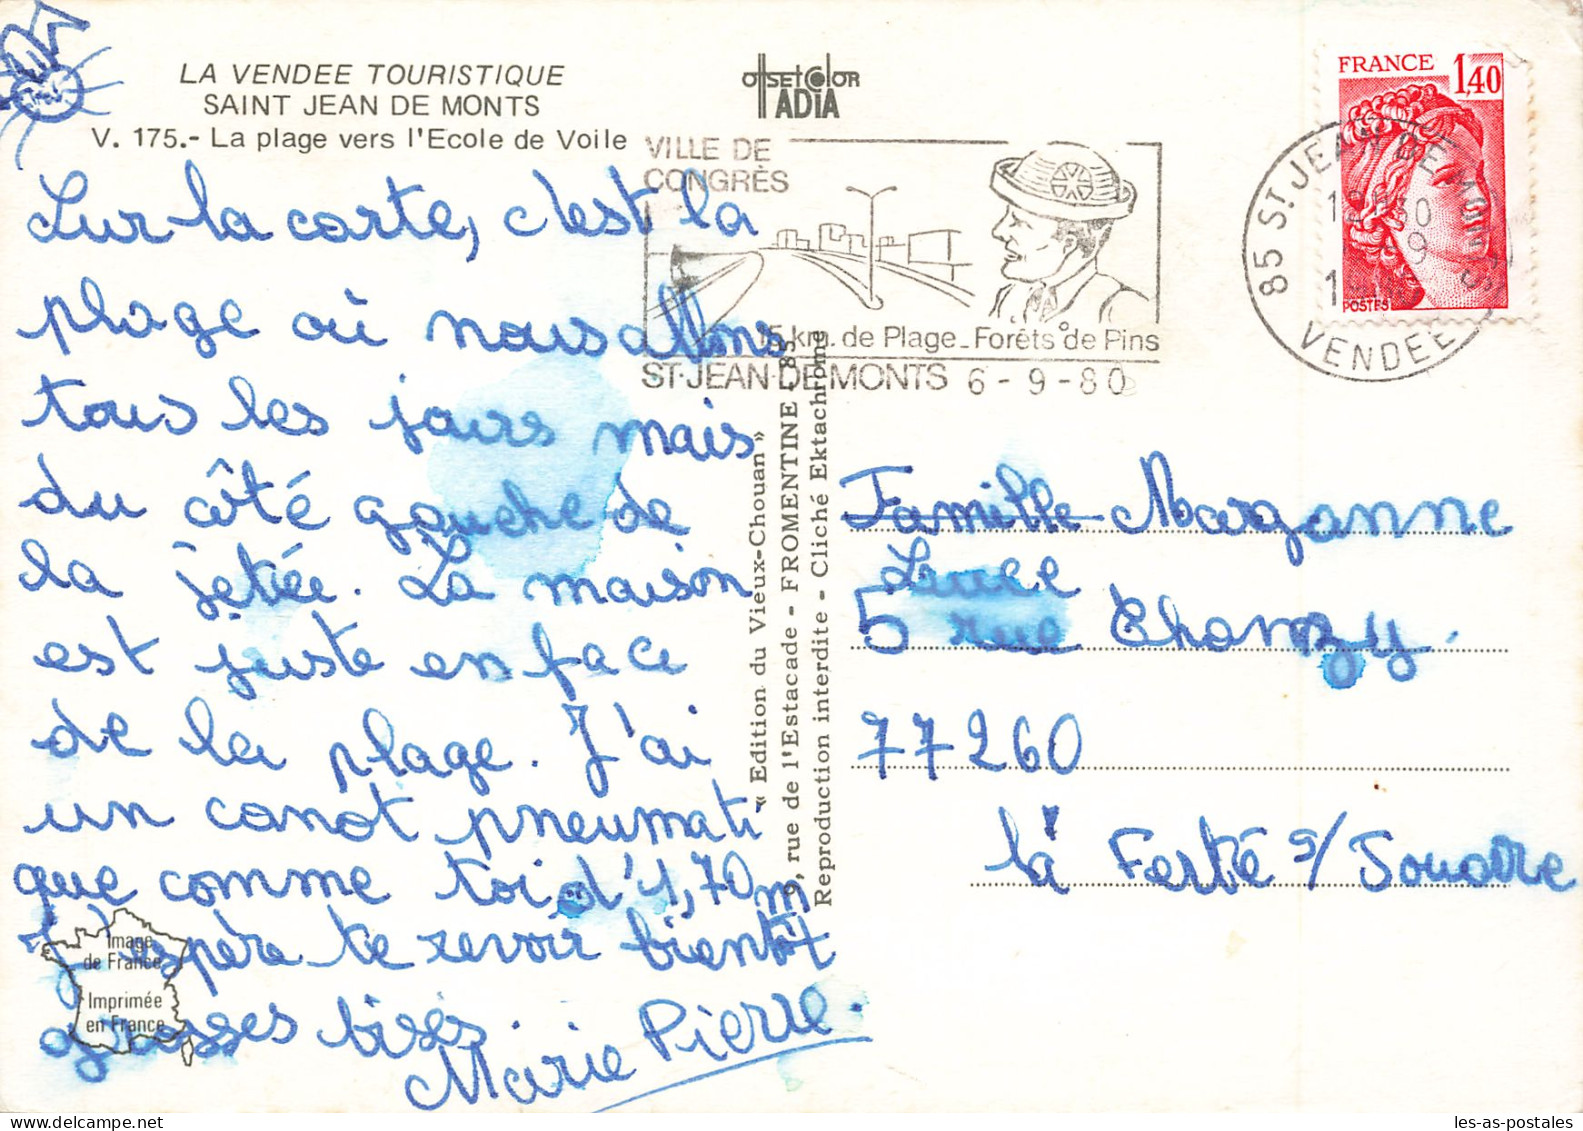 LA VENDEE TOURISTIQUE
SAINT JEAN DE MONTS
V. 175.- La plage vers l'Ecole de Voile
offset color
ADIA
VILLE DE
CONGRÈS
15 km. de Plage_Forêts de Pins
ST-JEAN-DE-MONTS 6-9-80
FRANCE 1,40
POSTES
85 ST. JEAN DE MONTS
VENDEE
Sur la carte, c'est la
plage où nous allons
tous les jours mais
du côté gauche de
la jetée. La maison
est juste en face
de la plage. J'ai
un canot pneumati
que comme toi, d'1,70m
J'espère te revoir bientôt
grosses bises.
Marie Pierre.
Image
de France
Imprimée
en France
« Edition du Vieux-Chouan »
9, rue de l'Estacade - FROMENTINE - 85
Reproduction interdite - Cliché Ektachrome
Famille Marganne
Luce
5 rue Chanzy.
77260
la Ferté s/ Jouarre
les-as-postales